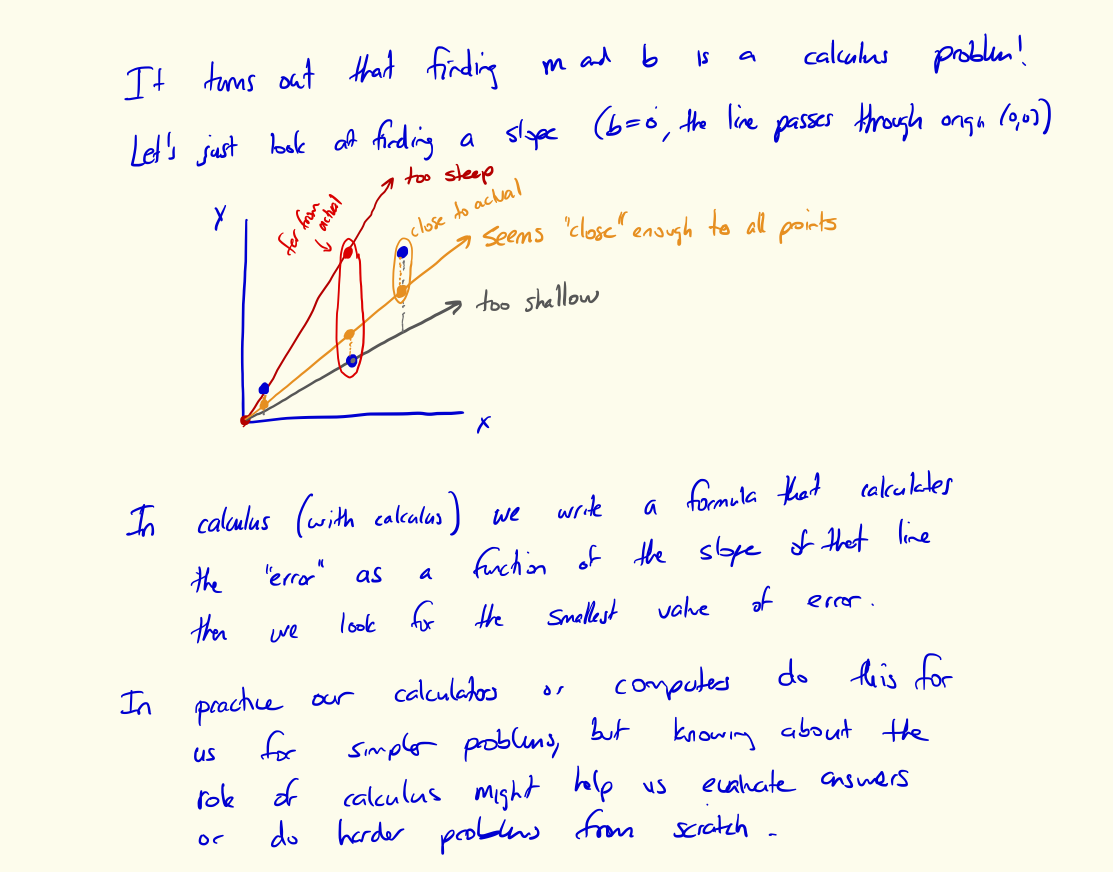 It turns out that finding m and b is a calculus problem!
Let's just look at finding a slope (b=0, the line passes through origin (0,0))
too steep
far from
actual
close to actual
Y
seems "close" enough to all points
too shallow
X
In calculus (with calculus) we write a formula that calculates
the "error" as a function of the slope of that line
then we look for the smallest value of error.
In practice our calculators or computers do this for
us for simpler problems, but knowing about the
role of calculus might help us evaluate answers
or do harder problems from scratch.